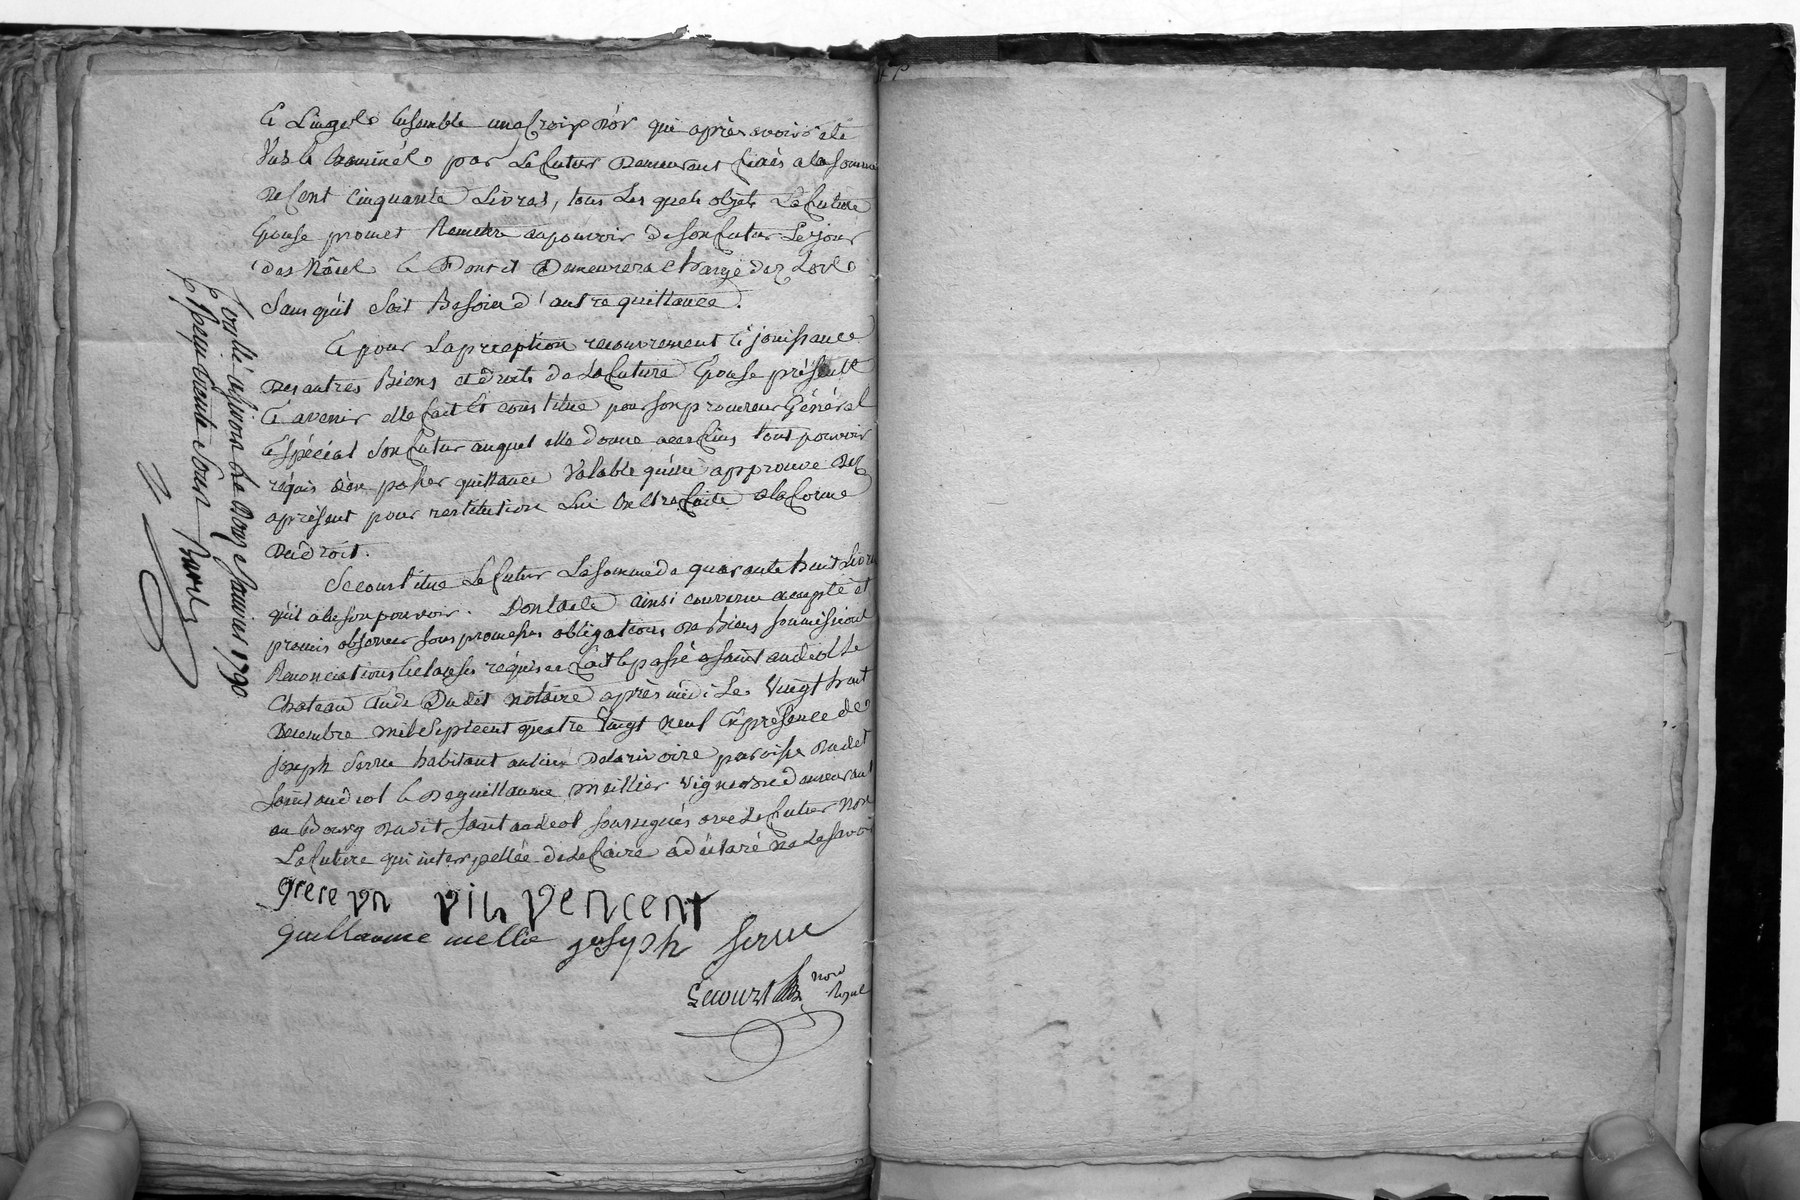 Et Linges Ensemble une Croix d'or qui apres avoir eté
Vus Et Examinés par Le futur Demeurent fixés a la somme
De Cent Cinquante Livres, tous Les quels objets La future
Epouse promet Remettre au pouvoir de son futur Le jour
des Et Dont il Demeurera Chargé dez Lors
sans qu'il soit Besoin d'autre quittance.
Et pour La preception recouvrement Et jouissance
Des autres Biens et droits de La future Epouse présents
Et avenir elle fait Et constitue pour son procureur Général
Et spécial son futur auquel elle donne a ces fins tout pouvoir
requis d'en passer quittance Valable qu'elle approuve dez
apresent pour restitution Lui En Etre faite a la forme
Du droit.
Se constitue Le futur La somme de quarante huit Livres
qu'il a de son pouvoir. Dont acte ainsi convenu accepté et
promis observer sous promesses obligations De Biens soumissions
Renonciations Et clauses requises fait Et passé a saint andeol Le
Chateau Etude Dudit notaire après midi Le Vingt huit
Decembre mil sept cent quatre Vingt Neuf En présence de
joseph Serve habitant au lieu De la rivoire paroisse Dudit
saint andeol Et De guillaume meillier Vigneron demeurant
au Bourg Dudit saint andeol soussignés avec Le futur Non
La future qui interpellée de Le faire a déclaré Ne Le savoir
vincent
guillaume mellie joseph serve
nore
Royal
Controllé a givors Le douze Janvier 1790
trente sous